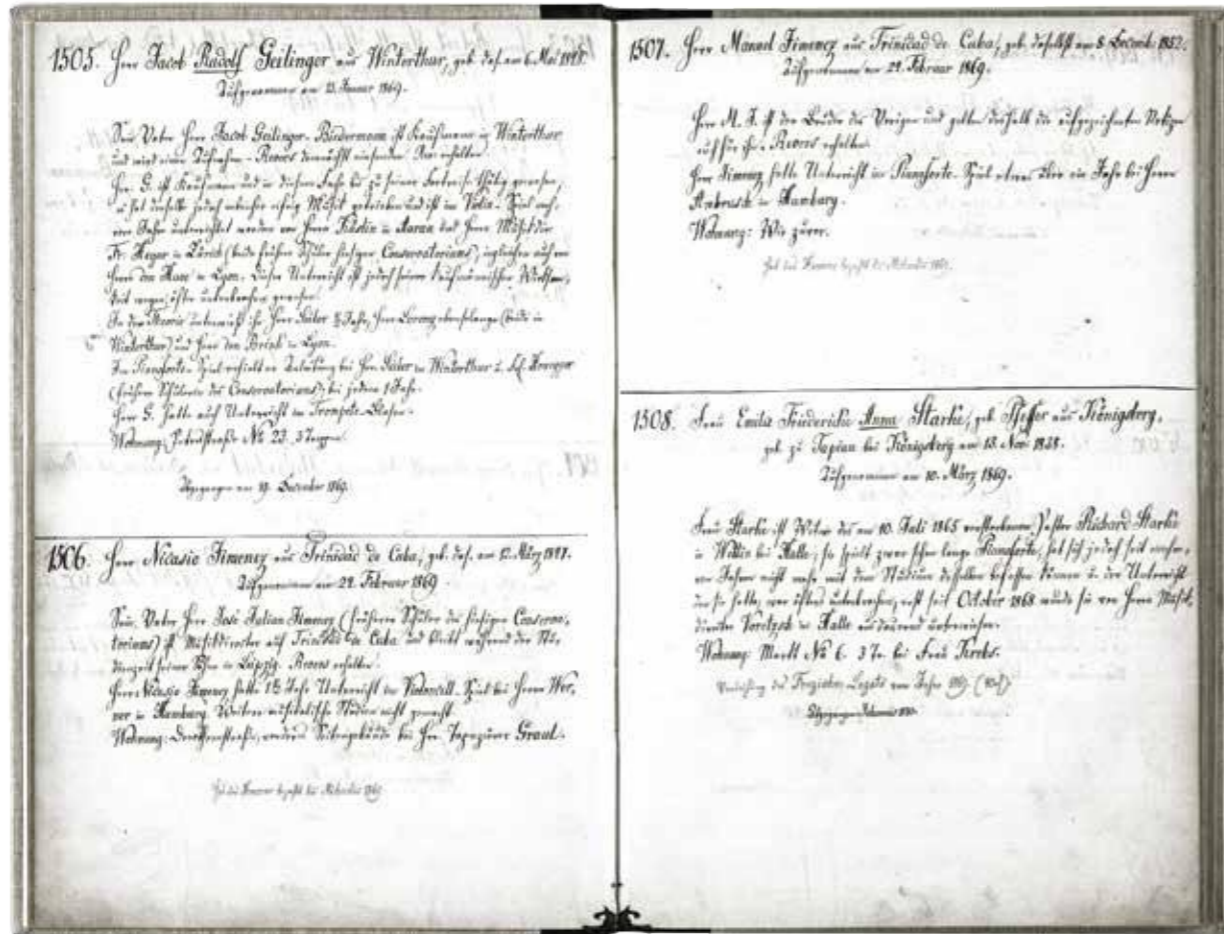 1505. Herr Jacob Rudolf Geilinger aus Winterthur, geb. das. am 6. Mai 1848.
Aufgenommen am 13. Januar 1869.
Sein Vater Herr Jacob Geilinger-Biedermann ist Kaufmann in Winterthur
und wird einen Aufnahme-Revers demnächst einsenden. Rev. erhalten.
Hr. G. ist Kaufmann und in diesem Fache bis zu seiner Herreise thätig gewesen,
er hat deshalb jedoch nebenher Musik getrieben und ist im Violin-Spiel meh-
rere Jahre unterrichtet worden von Herrn in Aarau und Herrn Musikdir.
Fr. Hegar in Zürich (beide frühere Schüler hiesigen Conservatoriums), ingleichen auch von
Herrn in Lyon. Dieser Unterricht ist jedoch seiner kaufmännischen
wegen öfter unterbrochen gewesen.
In der Theorie unterwies ihn Herr ½ Jahr, Herr ebensolange (beide in
Winterthur) und Herr in Lyon.
Im Pianoforte-Spiel erhielt er Anleitung bei Hrn. in Winterthur u. Frl.
(frühere Schülerin des Conservatoriums) bei jedem 1 Jahr.
Herr G. hatte auch Unterricht im Trompete-Blasen.
Wohnung: Petersstraße No 23. 3 Treppen.
Abgegangen am 19. December 1869.
1506. Herr Nicasio Jimenez aus Trinidad de Cuba, geb. das. am 12. März 1847.
Aufgenommen am 22. Februar 1869
Sein Vater Herr José Julian Jimenez (früherer Schüler des hiesigen Conserva-
toriums) ist Musikdirector auf Trinidad de Cuba und bleibt während der Stu-
dienzeit seiner Söhne in Leipzig. Revers erhalten.
Herr Nicasio Jimenez hatte 1½ Jahr Unterricht im Violoncell-Spiel bei Herrn
in Hamburg. Weitere musikalische Studien nicht gemacht.
Wohnung: Seitengebäude bei Hrn. Tapezierer Graul.
Hat das Honorar bezahlt bis Michaelis 1869
1507. Herr Manuel Jimenez aus Trinidad de Cuba, geb. daselbst am 8. Decemb. 1852.
Aufgenommen am 22. Februar 1869.
Herr M. J. ist der Bruder des Vorigen und gelten deshalb die aufgezeichneten Notizen
auch für ihn. Revers erhalten.
Herr Jimenez hatte Unterricht im Pianoforte-Spiel etwas über ein Jahr bei Herrn
in Hamburg.
Wohnung: Wie zuvor.
Hat das Honorar bezahlt bis Michaelis 1869.
1508. Frau Emilie Friederike Anna Starke, geb. aus Königsberg,
geb. zu Tapiau bei Königsberg am 13. Nov. 1838.
Aufgenommen am 10. März 1869.
Frau Starke ist Witwe des am 10. Juli 1865 verstorbenen Pastor Richard Starke
in Wettin bei Halle; sie spielt zwar schon lange Pianoforte, hat sich jedoch seit mehre-
ren Jahren nicht mehr mit dem Studium desselben befassen können u. der Unterricht
den sie hatte, war öfters unterbrochen, erst seit October 1868 wurde sie von Herrn Musik-
director Voretzsch in Halle andauernd unterwiesen.
Wohnung: Markt No 6. 3 Tr. bei Frau Krebs.
Legats vom Jahre 1869.